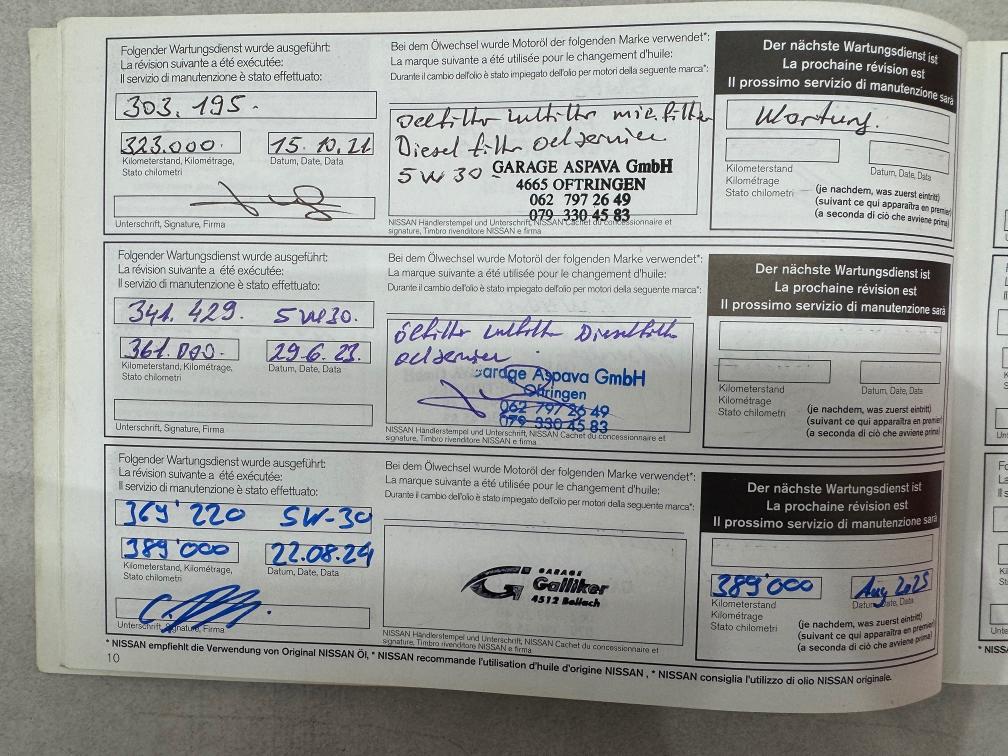 Folgender Wartungsdienst wurde ausgeführt:
La révision suivante a été exécutée:
Il servizio di manutenzione è stato effettuato:
303.195.
323.000.
15.10.21
Kilometerstand, Kilométrage,
Stato chilometri
Datum, Date, Data
Unterschrift, Signature, Firma
Bei dem Ölwechsel wurde Motoröl der folgenden Marke verwendet*:
La marque suivante a été utilisée pour le changement d'huile:
Durante il cambio dell'olio è stato impiegato dell'olio per motori della seguente marca*:
Oelfilter Luftfilter mic.filter
Diesel filter Oelservice
5W30
GARAGE ASPAVA GmbH
4665 OFTRINGEN
062 797 26 49
079 330 45 83
NISSAN Händlerstempel und Unterschrift, NISSAN Cachet du concessionnaire et
signature, Timbro rivenditore NISSAN e firma
Der nächste Wartungsdienst ist
La prochaine révision est
Il prossimo servizio di manutenzione sarà
Wartung.
Kilometerstand
Kilométrage
Stato chilometri
Datum, Date, Data
(je nachdem, was zuerst eintritt)
(suivant ce qui apparaîtra en premier)
(a seconda di ciò che avviene prima)
Folgender Wartungsdienst wurde ausgeführt:
La révision suivante a été exécutée:
Il servizio di manutenzione è stato effettuato:
341.429. 5W30.
361.000.
29.6.23.
Kilometerstand, Kilométrage,
Stato chilometri
Datum, Date, Data
Unterschrift, Signature, Firma
Bei dem Ölwechsel wurde Motoröl der folgenden Marke verwendet*:
La marque suivante a été utilisée pour le changement d'huile:
Durante il cambio dell'olio è stato impiegato dell'olio per motori della seguente marca*:
Ölfilter Luftfilter Dieselfilter
Oelservice.
Garage Aspava GmbH
Oftringen
062 797 26 49
079 330 45 83
NISSAN Händlerstempel und Unterschrift, NISSAN Cachet du concessionnaire et
signature, Timbro rivenditore NISSAN e firma
Der nächste Wartungsdienst ist
La prochaine révision est
Il prossimo servizio di manutenzione sarà
Kilometerstand
Kilométrage
Stato chilometri
Datum, Date, Data
(je nachdem, was zuerst eintritt)
(suivant ce qui apparaîtra en premier)
(a seconda di ciò che avviene prima)
Folgender Wartungsdienst wurde ausgeführt:
La révision suivante a été exécutée:
Il servizio di manutenzione è stato effettuato:
369'220 5W-30
389'000
22.08.24
Kilometerstand, Kilométrage,
Stato chilometri
Datum, Date, Data
Unterschrift, Signature, Firma
Bei dem Ölwechsel wurde Motoröl der folgenden Marke verwendet*:
La marque suivante a été utilisée pour le changement d'huile:
Durante il cambio dell'olio è stato impiegato dell'olio per motori della seguente marca*:
GARAGE
Galliker
4512 Bellach
NISSAN Händlerstempel und Unterschrift, NISSAN Cachet du concessionnaire et
signature, Timbro rivenditore NISSAN e firma
Der nächste Wartungsdienst ist
La prochaine révision est
Il prossimo servizio di manutenzione sarà
389'000
Aug 2025
Kilometerstand
Kilométrage
Stato chilometri
Datum, Date, Data
(je nachdem, was zuerst eintritt)
(suivant ce qui apparaîtra en premier)
(a seconda di ciò che avviene prima)
* NISSAN empfiehlt die Verwendung von Original NISSAN Öl, * NISSAN recommande l'utilisation d'huile d'origine NISSAN, * NISSAN consiglia l'utilizzo di olio NISSAN originale.
10